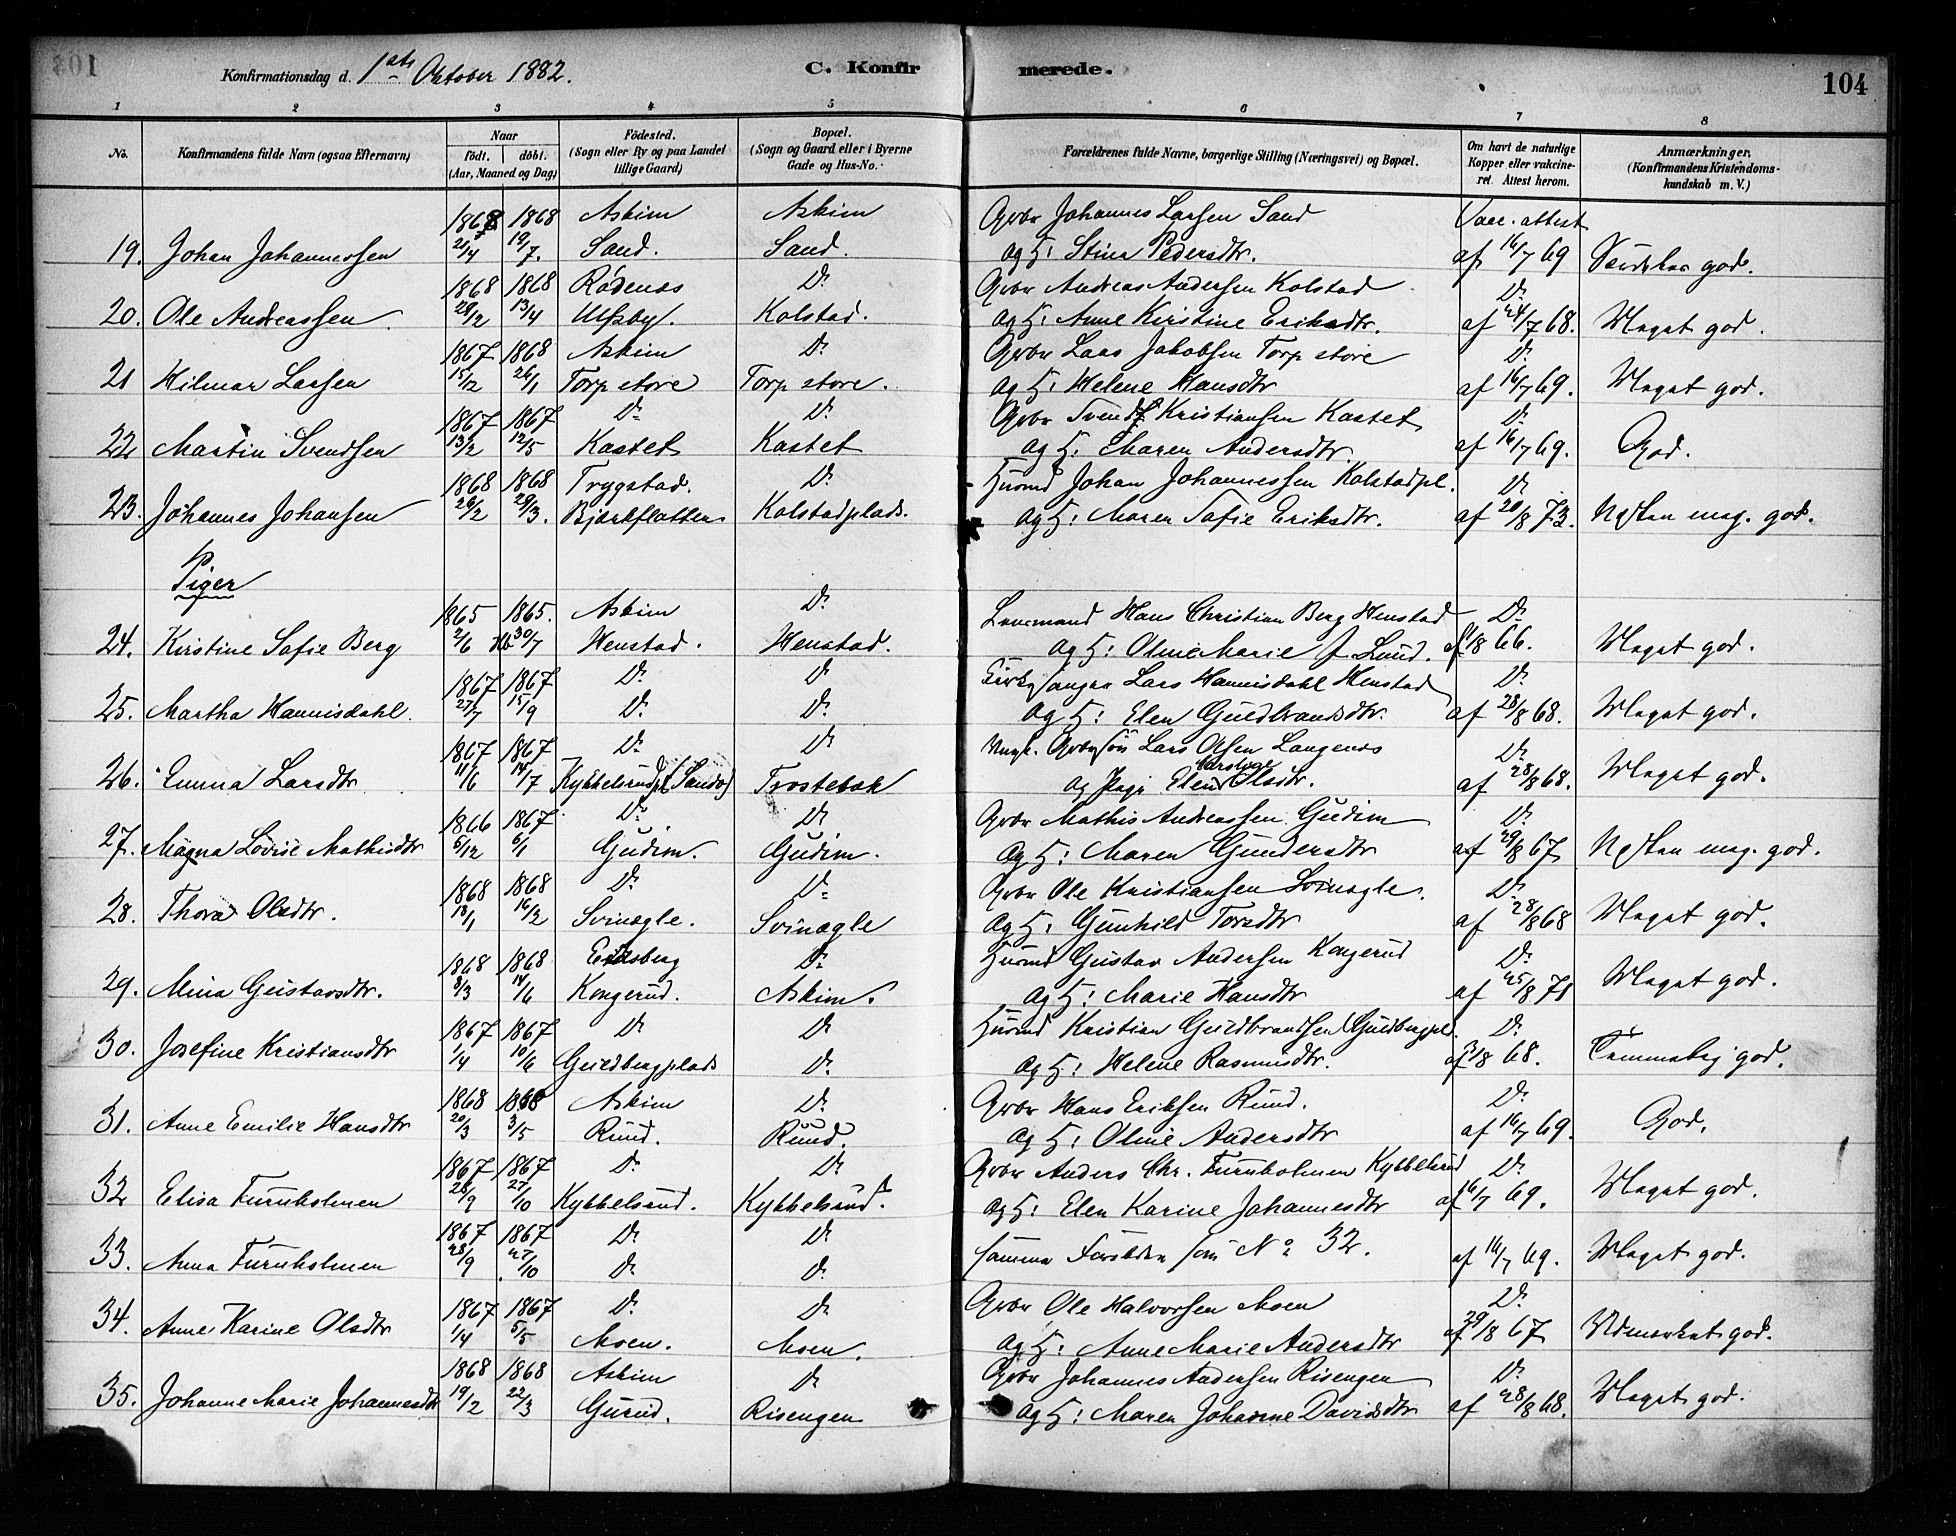 Konfirmationsdag d. 1ste Oktober 1882. C. Konfirmerede. 104
1 2 3 4 5 6 7 8
No. Konfirmandens fulde Navn (ogsaa Efternavn) Naar födt. döbt. (Aar, Maaned og Dag) Födested. (Sogn eller By og paa Landet tillige Gaard) Bopæl. (Sogn og Gaard eller i Byerne Gade og Hus-No. Forældrenes fulde Navne, borgerlige Stilling (Næringsvei) og Bopæl. Om havt de naturlige Kopper eller vakcineret. Attest herom. Anmærkninger. (Konfirmandens Kristendomskundskab m. V.)
1868 1868 Askim Askim Gbr Johannes Larsen Sand Vacc. attest
19. Johan Johannessen 21/4 19/7. Sand. Sand. og H: Stina Pedersdtr. af 16/7 69 god.
1868 1868 Rödenæs Do Gbr Andreas Andersen Kolstad Do
20. Ole Andreassen 28/2 13/4 Ulfsby. Kolstad. og H: Anne Kirstine Eriksdtr. af 24/7 68. Meget god.
1867 1868 Askim Do Gbr Lars Jakobsen Torp store Do
21 Hilmar Larsen 15/12 26/1 Torp store Torp store. og H: Helene Hansdtr af 16/7 69. Meget god.
1867 1867 Do Do Gbr Svend Kristiansen Kastet Do
22 Martin Svendsen 13/2 12/5 Kastet Kastet og H: Maren Andersdtr. af 16/7 69. God.
1868 1868 Trygstad. Do Husmd Johan Johannessen Kolstadpl. Do
23. Johannes Johansen 26/2 29/3. Bjerkeflotten Kolstadplads. og H: Maren Sofie Eriksdtr. af 20/8 73. Næsten meg. god.
Piger
1865 1865. Askim Do Lensmand Hans Christian Berg Henstad Do
24. Kirstine Sofie Berg 2/6 30/7 Henstad. Henstad. og H: Oline Marie J Lund. af 9/8 66. Meget god.
1867 1867 Do Do Kirkesanger Lars Hannisdahl Henstad Do
25. Martha Hannisdahl. 27/7 15/9 Do Do og H: Elen Guldbrandsdtr. af 28/8 68. Meget god.
1867 1867 Do Do Ungk. Gbrsön Lars Olsen Langenæs Do
26. Emma Larsdtr 11/6 14/7 Kykkelsrud (pl Sando) Trostebak og Pige Elen Karoline Olsdtr. af 28/8 68. Meget god.
1866 1867 Do Do Gbr Mathis Andreassen Gudim Do
27. Magna Lovise Mathisdtr 6/12 6/1 Gudim. Gudim. og H: Maren Gundersdtr af 29/8 67 Næsten meg. god.
1868 1868 Do Do Gbr Ole Kristiansen Svinægle. Do
28. Thora Olsdtr. 18/1 16/2 Svinægle. Svinægle og H: Gunhild Torsdtr af 28/8 68 Meget god.
1868 1868 Eidsberg Do Husmd Gustav Andersen Kongerud Do
29. Mina Gustavsdtr. 8/3 14/6 Kongerud. Askim. og H: Marie Hansdtr af 25/8 71 Meget god.
1867 1867 Do Do Husmd Kristian Guldbrandsen Guldbergpl. Do
30. Josefine Kristiansdtr 1/4 10/6 Guldbergplads Do og H: Helene Rasmusdtr. af 31/8 68. Temmelig god.
1868 1868 Askim Do Gbr Hans Eriksen Rud. Do
31. Anne Emilie Hansdtr 20/3 3/5 Rud. Rud. og H: Oline Andersdtr af 16/7 69. God.
1867 1867 Do Do Gbr Anders Chr. Furuholmen Kykkelsrud Do
32 Elisa Furuholmen 28/9 27/10 Kykkelsrud. Kykkelsrud. og H: Elen Karine Johannesdtr af 16/7 69. Meget god.
1867 1867 Do Do
33. Anna Furuholmen 28/9 27/10 Do Do samme Forældre som No 32. af 16/7 69. Meget god.
1867 1867 Do Do Gbr Ole Halvorsen Moen Do
34. Anne Karine Olsdtr 1/4 5/5 Moen. Moen. og H: Anne Marie Andersdtr af 29/8 67 Udmærket god.
1868 1868 Askim Do Gbr Johannes Andersen Risengen Do
35. Johanne Marie Johannesdtr 19/2 22/3 Gurud. Risengen og H: Maren Johanne Davidsdtr af 28/8 68. Meget god.